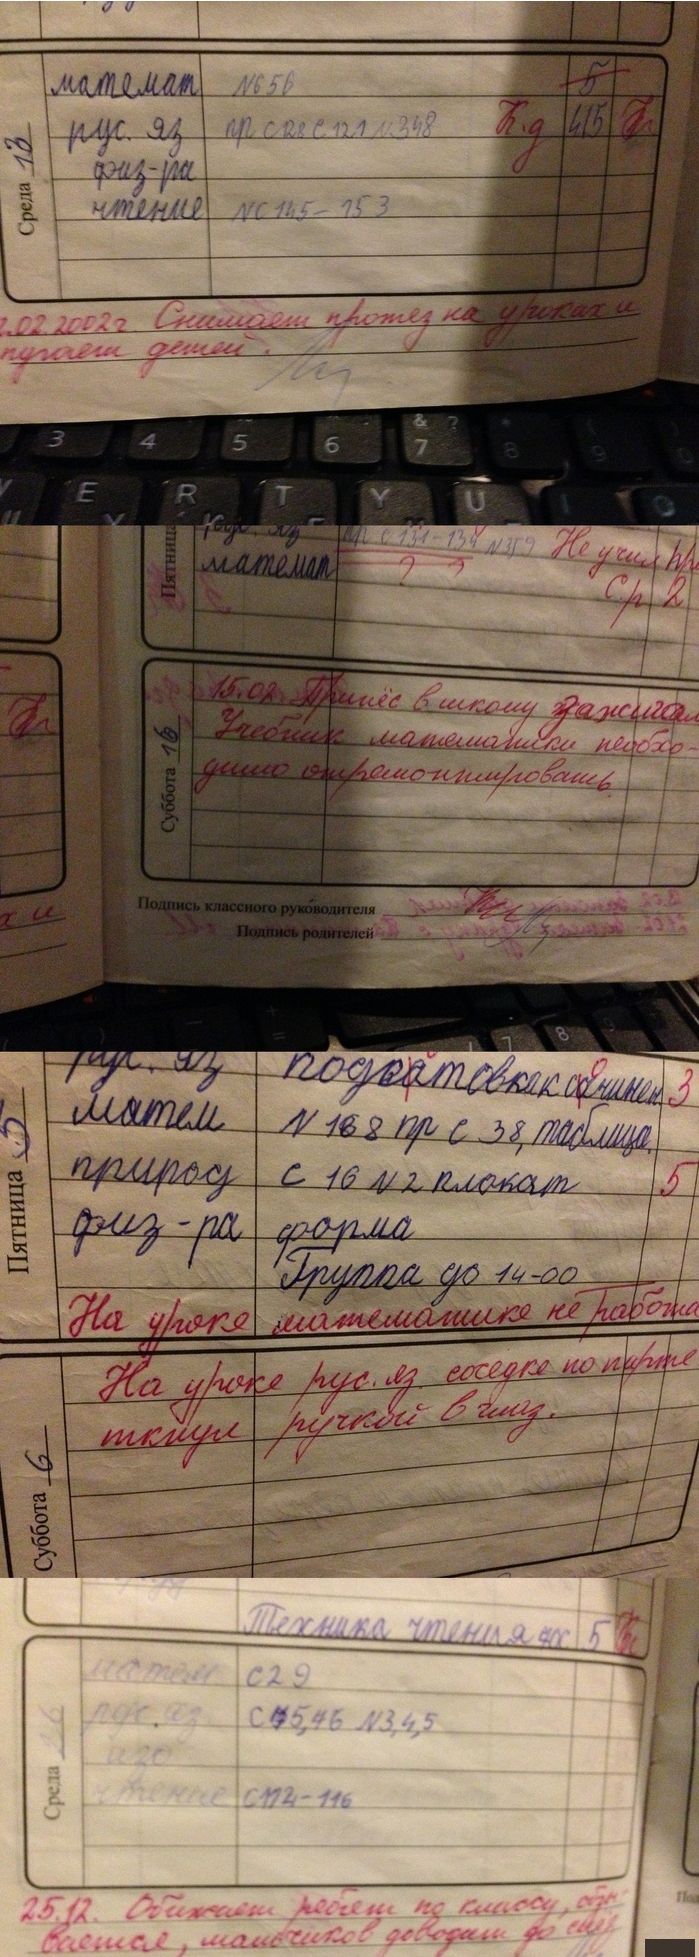 Среда 13
математ N656 5
рус. яз пр с 128 с 121 N348 К.д 4/5
физ-ра
чтение N с 145-153
.02.2002г. Снимает протез на уроках и
пугает детей.
3 4 5 6 & 7 ? 8 9
E R T Y U I O
Пятница рус. яз пр с 131-134 N359 Не учил пр
математ С.р 2
Суббота 16
15.02. Принёс в школу зажигал
Учебник математики необхо-
димо отремонтировать.
Подпись классного руководителя
Подпись родителей
х и
7 8 9
Пятница 5
рус. яз подготовка к сочинен 3
матем N 168 пр с 38, таблица.
природ с 16 N2 плакат 5
физ-ра форма
Группа до 14-00
На уроке математике не работа
Суббота 6
На уроке рус. яз. соседке по парте
ткнул ручкой в глаз.
Техника чтения 5
Среда 26
матем с29
рус. яз с 75,76 N3,4,5
изо
чтение с 112-116
25.12. Обижает ребят по классу, обзы-
вается, мальчиков доводит до слёз